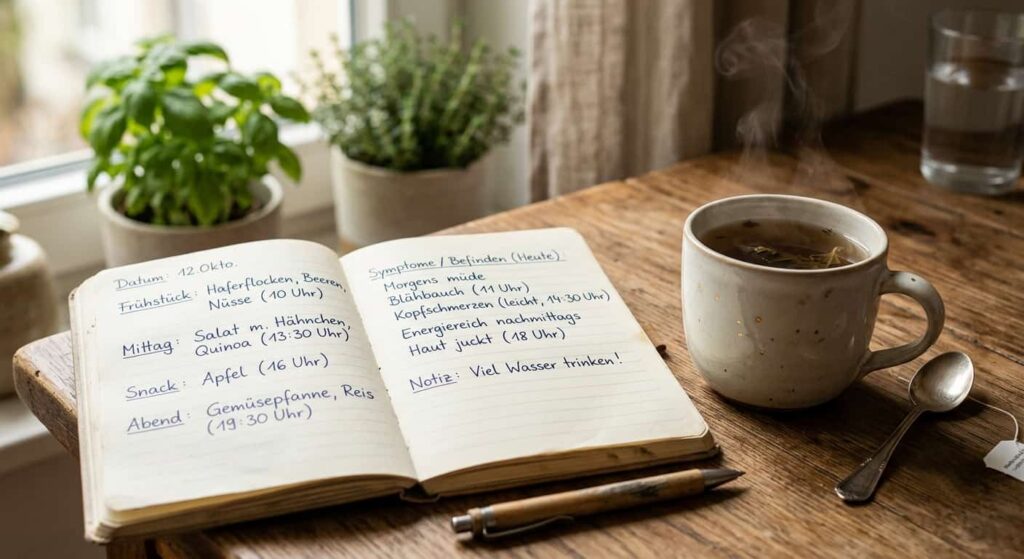 Datum: 12.Okto.
Frühstück: Haferflocken, Beeren,
Nüsse (10 Uhr)
Mittag: Salat m. Hähnchen,
Quinoa (13:30 Uhr)
Snack: Apfel (16 Uhr)
Abend: Gemüsepfanne, Reis
(19:30 Uhr)
Symptome/Befinden (Heute)
Morgens müde
Blähbauch (11 Uhr)
Kopfschmerzen (leicht, 14:30 Uhr)
Energiereich nachmittags
Haut juckt (18 Uhr)
Notiz: Viel Wasser trinken!